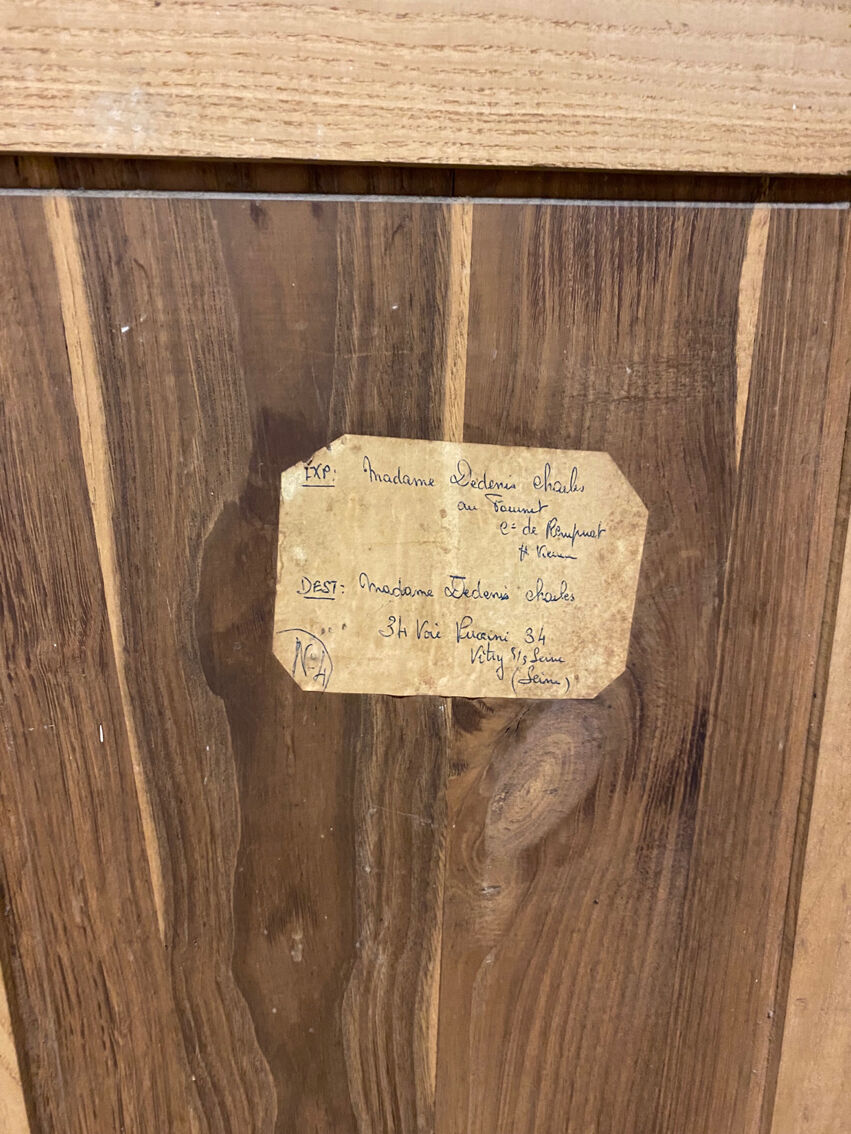 EXP: Madame Dedenis Charles
au
Cne de Rempnat
Hte Vienne
DEST: Madame Dedenis Charles
34 Voie Puccini 34
Vitry s/s Seine
(Seine)
N°4